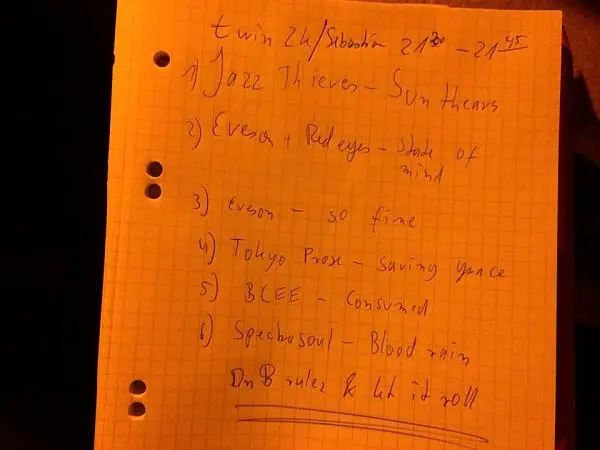 twin 2K/Sebastian 21³⁰ – 21⁴⁵
1) Jazz Thieves – Sun thears
2) Eveson + Redeyes – State of
mind
3) eveson – so fine
4) Tokyo Prose – saving grace
5) BCEE – Consumed
6) Spectrasoul – Blood rain
DnB rulez & let it roll